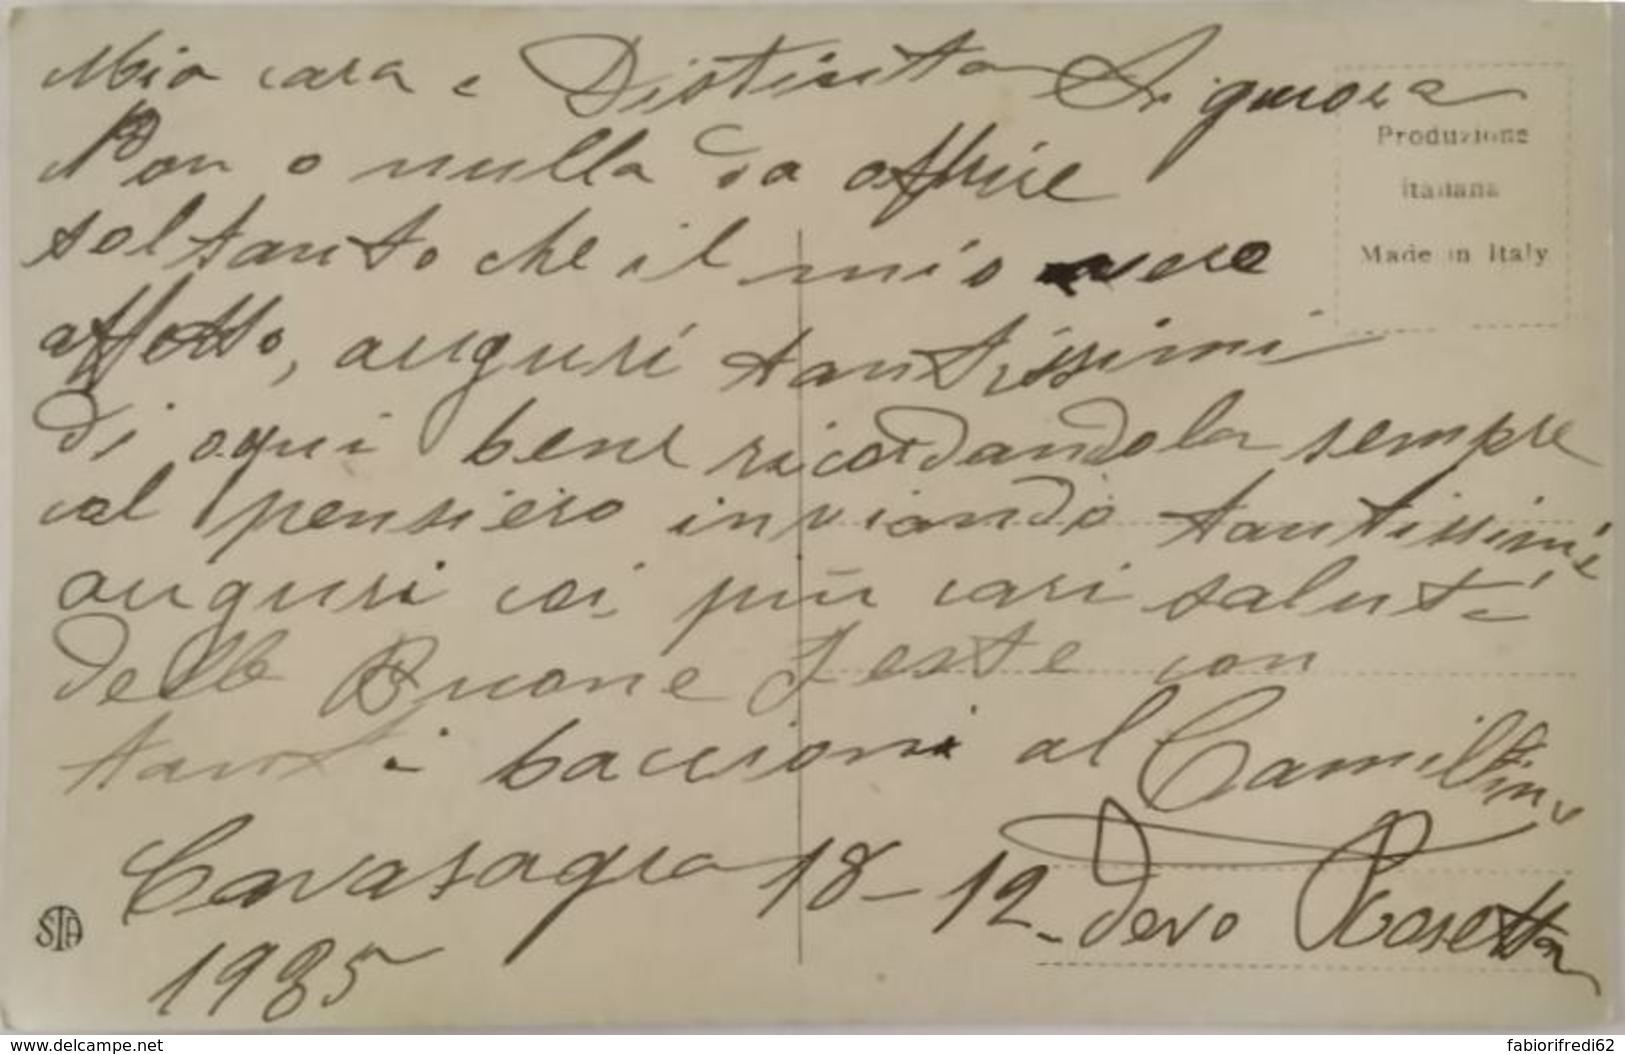 Mia cara e Distinta Signora
Non o nulla da offrire
soltanto che il mio vero
affetto, auguri tantissimi
di ogni bene ricordandola sempre
col pensiero inviando tantissimi
auguri coi più cari saluti
delle Buone Feste con
tanti baccioni al Camillino
Cavasagra 18-12-
1985
Devo Rosetta
Produzione
italiana
Made in Italy
STA
www.delcampe.net
fabiorifredi62